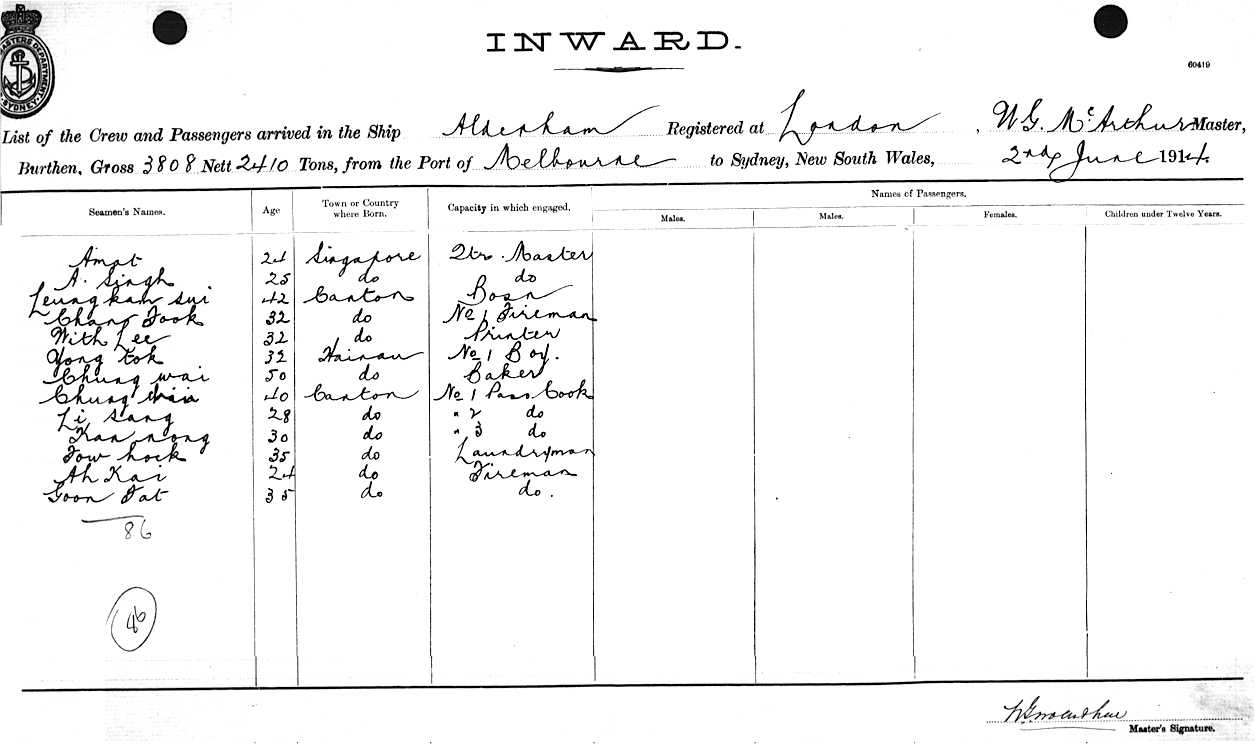 INWARD.
60419
MASTERS DEPARTMENT
SYDNEY
List of the Crew and Passengers arrived in the Ship Aldenham Registered at London, W.G. McArthur Master,
Burthen, Gross 3808 Nett 2410 Tons, from the Port of Melbourne to Sydney, New South Wales, 2nd June 1914.
Seamen's Names. Age Town or Country where Born. Capacity in which engaged. Names of Passengers.
Males. Males. Females. Children under Twelve Years.
Amat 24 Singapore Qtr. Master
A. Singh 25 do do
Leung Kam Sui 42 Canton Bosn
Chang Fook 32 do No 1 Fireman
With Lee 32 do Printer
Yong tok 32 Hainan No 1 Boy.
Chung wai 50 do Baker
Chung 40 Canton No 1 Pass Cook
Li sang 28 do " 2 do
Kan nong 30 do " 3 do
Fow hock 35 do Laundryman
Ah Kai 24 do Fireman
Goon Fat 35 do do.
86
46
Master's Signature.